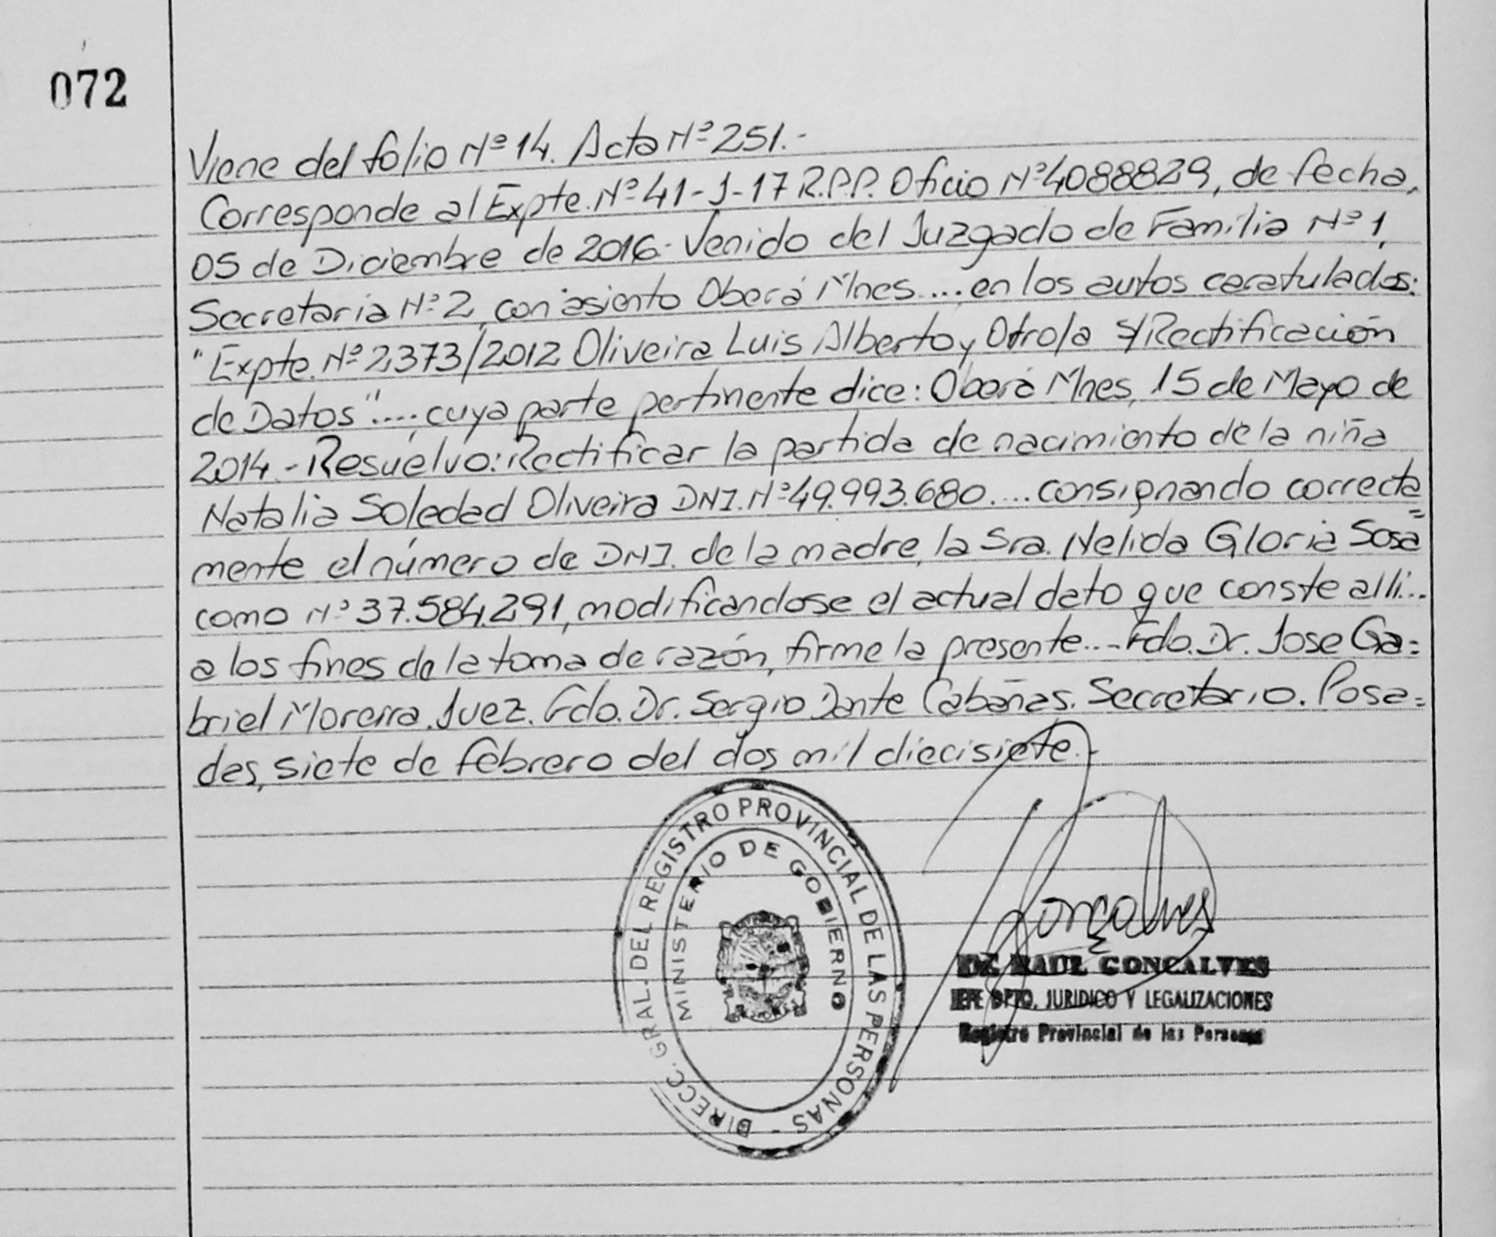 072
Viene del folio Nº 14. Acta Nº 251.-
Corresponde al Expte. Nº 41-J-17 R.P.P. Oficio Nº 4088829, de fecha,
05 de Diciembre de 2016. Venido del Juzgado de Familia Nº 1,
Secretaria Nº 2, con asiento Oberá Mnes... en los autos caratulados:
"Expte. Nº 2373/2012 Oliveira Luis Alberto y Otro/a S/Rectificación
de Datos"... cuya parte pertinente dice: Oberá Mnes, 15 de Mayo de
2014.- Resuelvo: Rectificar la partida de nacimiento de la niña
Natalia Soledad Oliveira DNI. Nº 49.993.680.... consignando correcta
mente el número de DNI. de la madre, la Sra. Nelida Gloria Sosa=
como Nº 37.584.291, modificandose el actual dato que conste alli...
a los fines de la toma de razón, firme la presente...- Fdo. Dr. Jose Ga=
briel Moreira. Juez. Fdo. Dr. Sergio Dante Cabañas. Secretario. Posa=
das, siete de febrero del dos mil diecisiete.-
DIRECC. GRAL. DEL REGISTRO PROVINCIAL DE LAS PERSONAS -
MINISTERIO DE GOBIERNO
Gonçalves
Dr. RAUL GONCALVES
JEFE DPTO. JURIDICO Y LEGALIZACIONES
Registro Provincial de las Personas